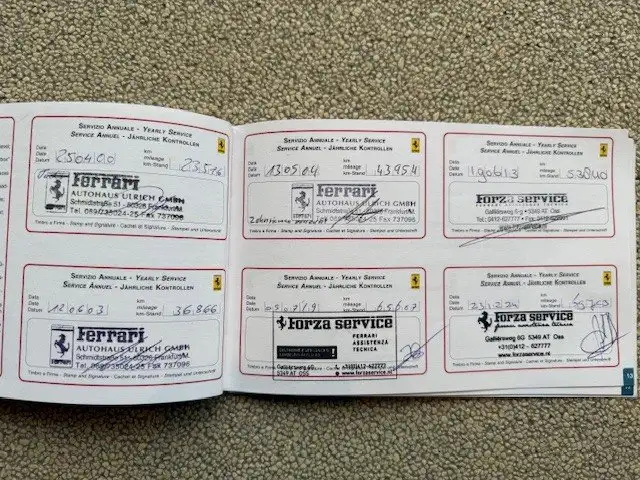 SERVIZIO ANNUALE - YEARLY SERVICE
SERVICE ANNUEL - JÄHRLICHE KONTROLLEN
Data
Date
Datum 25 04 00
km
mileage
km-Stand 23.576
Ferrari
AUTOHAUS ULRICH GMBH
Schmidtstraße 51 - 60326 Frankfurt/M.
Tel. 069/735024-25 Fax 737096
Timbro e Firma - Stamp and Signature - Cachet et Signature - Stempel und Unterschrift
SERVIZIO ANNUALE - YEARLY SERVICE
SERVICE ANNUEL - JÄHRLICHE KONTROLLEN
Data
Date
Datum 12 06 03
km
mileage
km-Stand 36.866
Ferrari
AUTOHAUS ULRICH GMBH
Schmidtstraße 51 - 60326 Frankfurt/M.
Tel. 069/735024-25 Fax 737096
Timbro e Firma - Stamp and Signature - Cachet et Signature - Stempel und Unterschrift
SERVIZIO ANNUALE - YEARLY SERVICE
SERVICE ANNUEL - JÄHRLICHE KONTROLLEN
Data
Date
Datum 13 05 04
km
mileage
km-Stand 43954
Ferrari
AUTOHAUS ULRICH GMBH
Schmidtstraße 51 - Frankfurt/M.
Tel. 069/735024-25 Fax 737096
Timbro e Firma - Stamp and Signature - Cachet et Signature - Stempel und Unterschrift
SERVIZIO ANNUALE - YEARLY SERVICE
SERVICE ANNUEL - JÄHRLICHE KONTROLLEN
Data
Date
Datum
km
mileage
km-Stand
forza service
Galliërsweg 6G • 5349 AT Oss
Timbro e Firma - Stamp and Signature - Cachet et Signature - Stempel und Unterschrift
SERVIZIO ANNUALE - YEARLY SERVICE
SERVICE ANNUEL - JÄHRLICHE KONTROLLEN
Data
Date
Datum
km
mileage
km-Stand
forza service
FERRARI
ASSISTENZA
TECNICA
Galliërsweg 6G
5349 AT OSS
+31(0)412-627777
www.forzaservice.nl
Timbro e Firma - Stamp and Signature - Cachet et Signature - Stempel und Unterschrift
SERVIZIO ANNUALE - YEARLY SERVICE
SERVICE ANNUEL - JÄHRLICHE KONTROLLEN
Data
Date
Datum
km
mileage
km-Stand
forza service
Galliërsweg 6G 5349 AT Oss
+31(0)412 - 627777
www.forzaservice.nl
Timbro e Firma - Stamp and Signature - Cachet et Signature - Stempel und Unterschrift